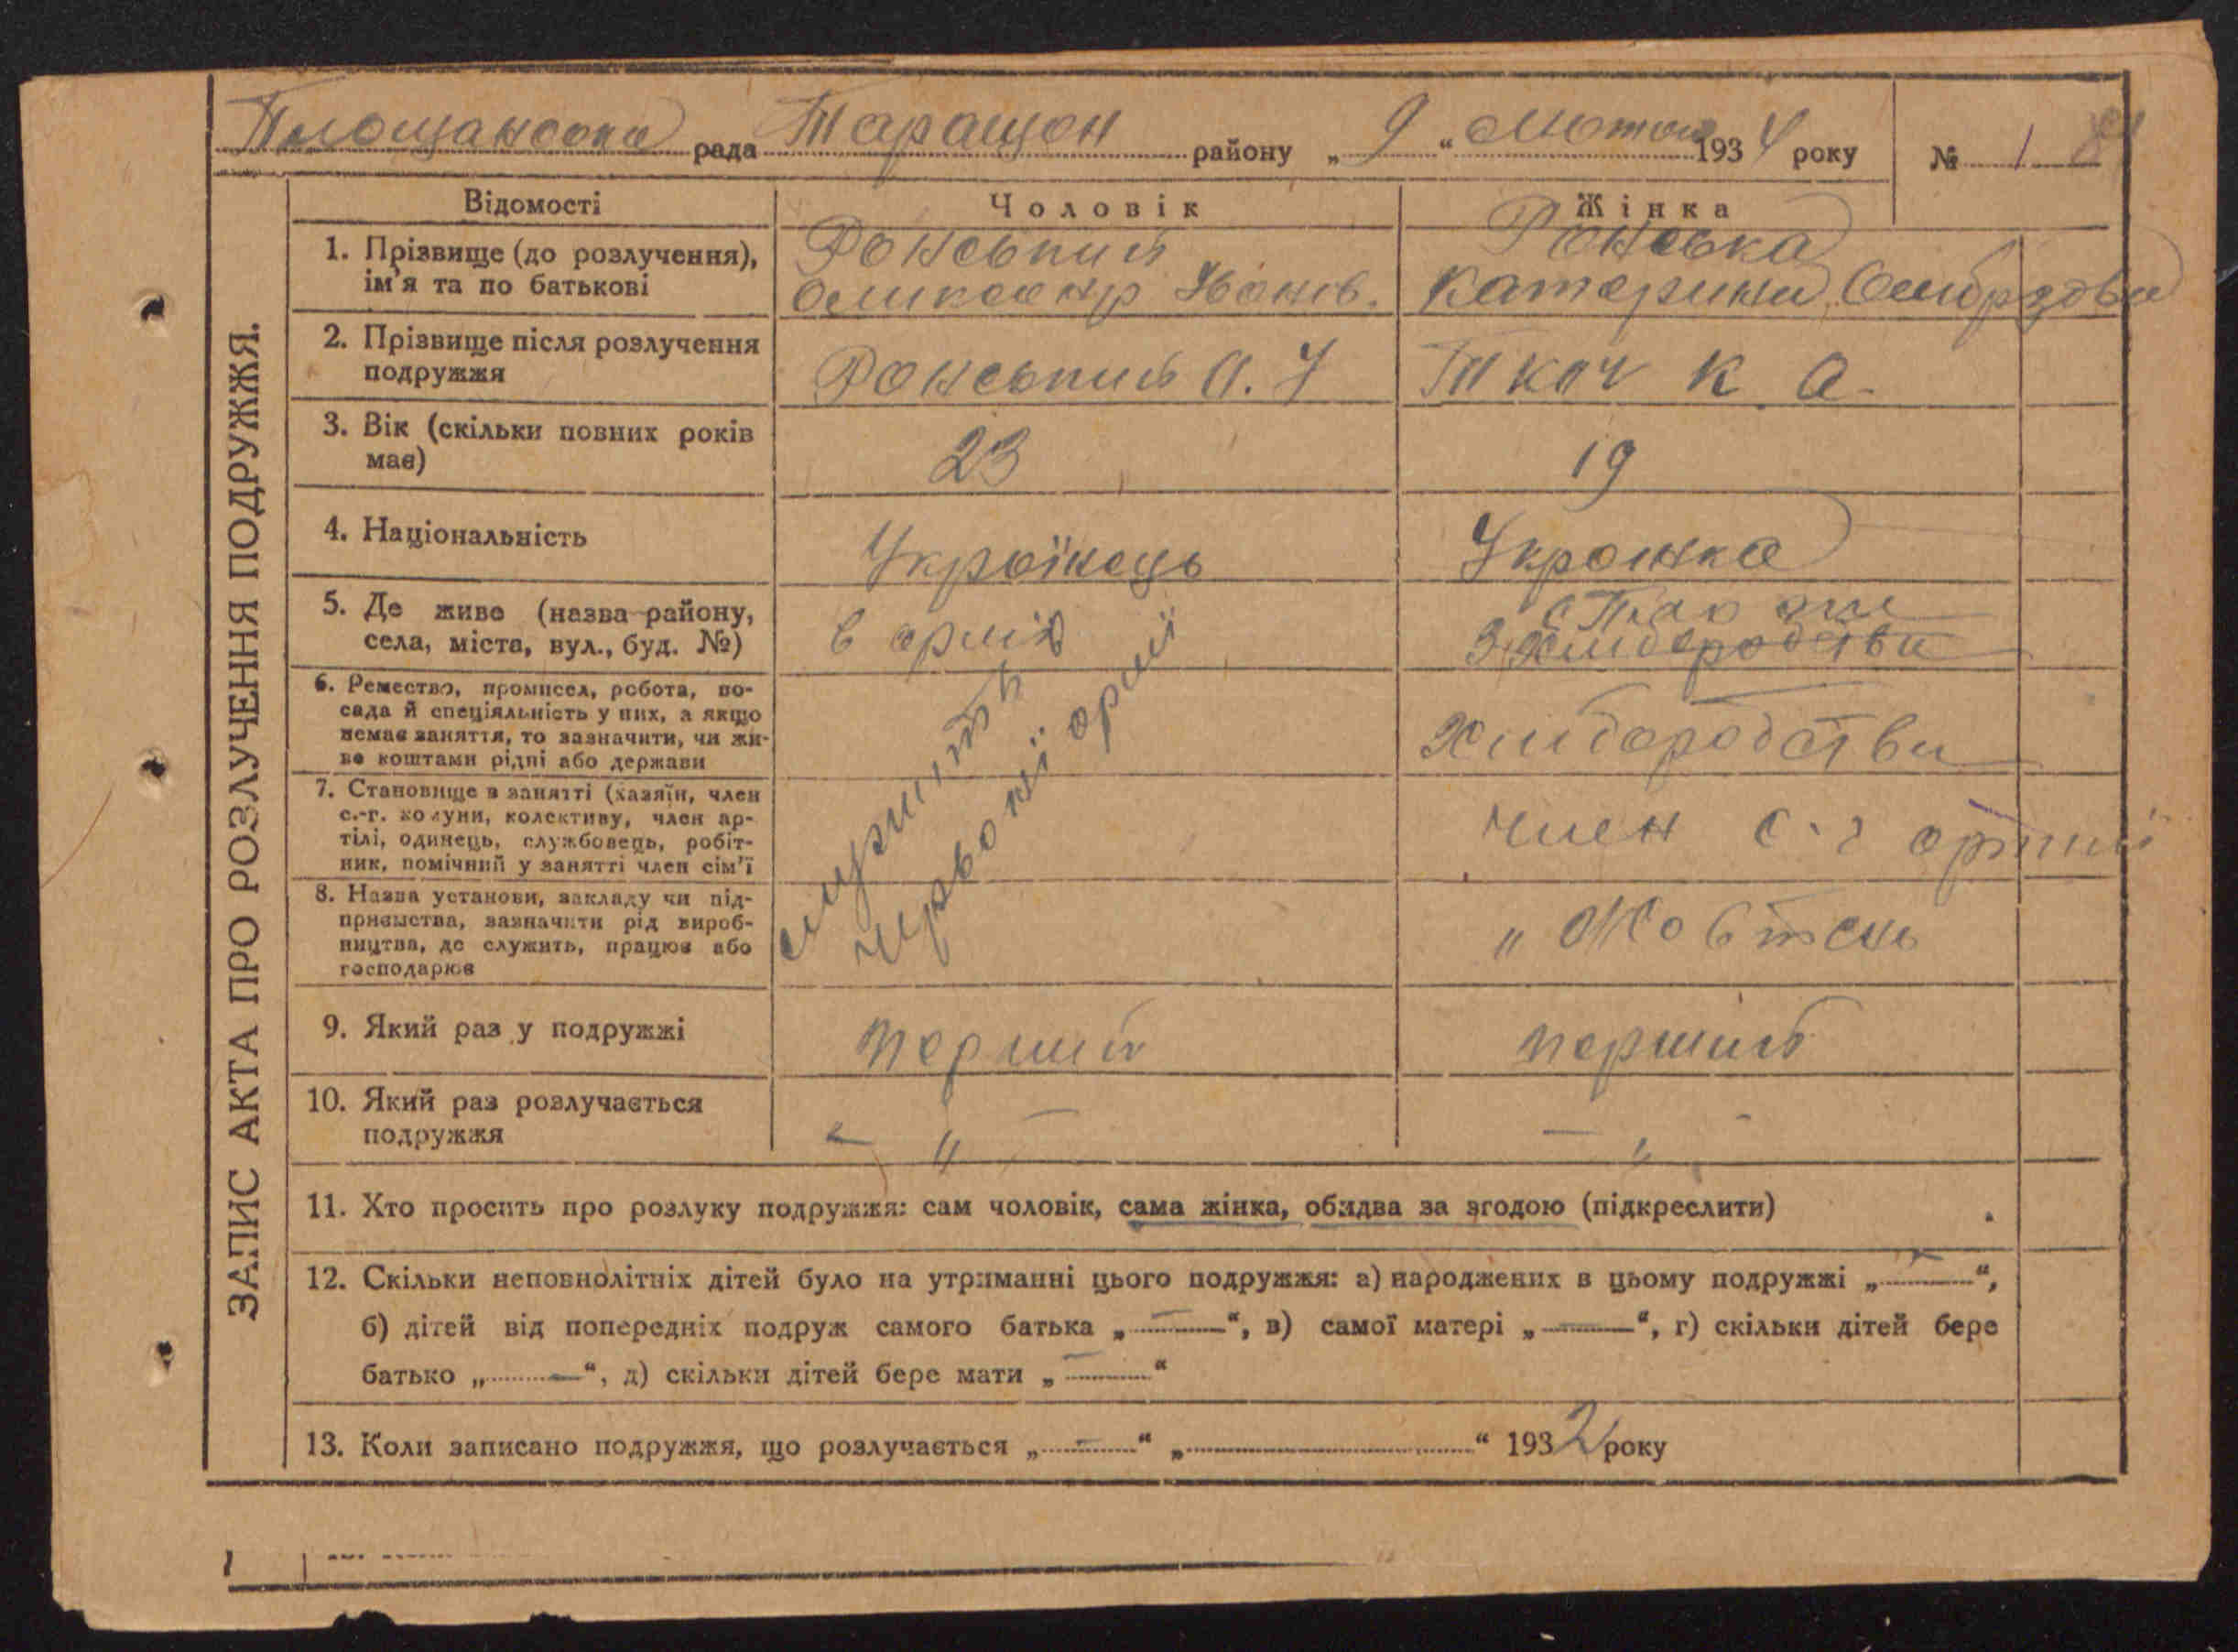 Площанська рада Таращан району „ 9 “ Лютого 1934 року № 1
ЗАПИС АКТА ПРО РОЗЛУЧЕННЯ ПОДРУЖЖЯ.
Відомості Чоловік Жінка
1. Прізвище (до розлучення), ім'я та по батькові
Ронський
Іванів.
Ронська
Катерина
2. Прізвище після розлучення подружжя
Ронський О. І
Ткач К О.
3. Вік (скільки повних років має)
23
19
4. Національність
Українець
Українка
5. Де живе (назва району, села, міста, вул., буд. №)
в армії
6. Ремество, промисел, робота, посада й спеціяльність у них, а якщо немає заняття, то зазначити, чи живе коштами рідні або держави
служить
червоній армії
7. Становище в занятті (хазяїн, член с.-г. комуни, колективу, член артілі, одинець, службовець, робітник, помічний у занятті член сім'ї
член с.-г артілі
8. Назва установи, закладу чи підприємства, зазначити рід виробництва, де служить, працює або господарює
„ Жовтень
9. Який раз у подружжі
перший
перший
10. Який раз розлучається подружжя
— „ —
— „ —
11. Хто просить про розлуку подружжя: сам чоловік, сама жінка, обидва за згодою (підкреслити)
12. Скільки неповнолітніх дітей було на утриманні цього подружжя: а) народжених в цьому подружжі „—“,
б) дітей від попередніх подруж самого батька „—“, в) самої матері „—“, г) скільки дітей бере
батько „—“, д) скільки дітей бере мати „—“
13. Коли записано подружжя, що розлучається „—“ „ “ 1932 року